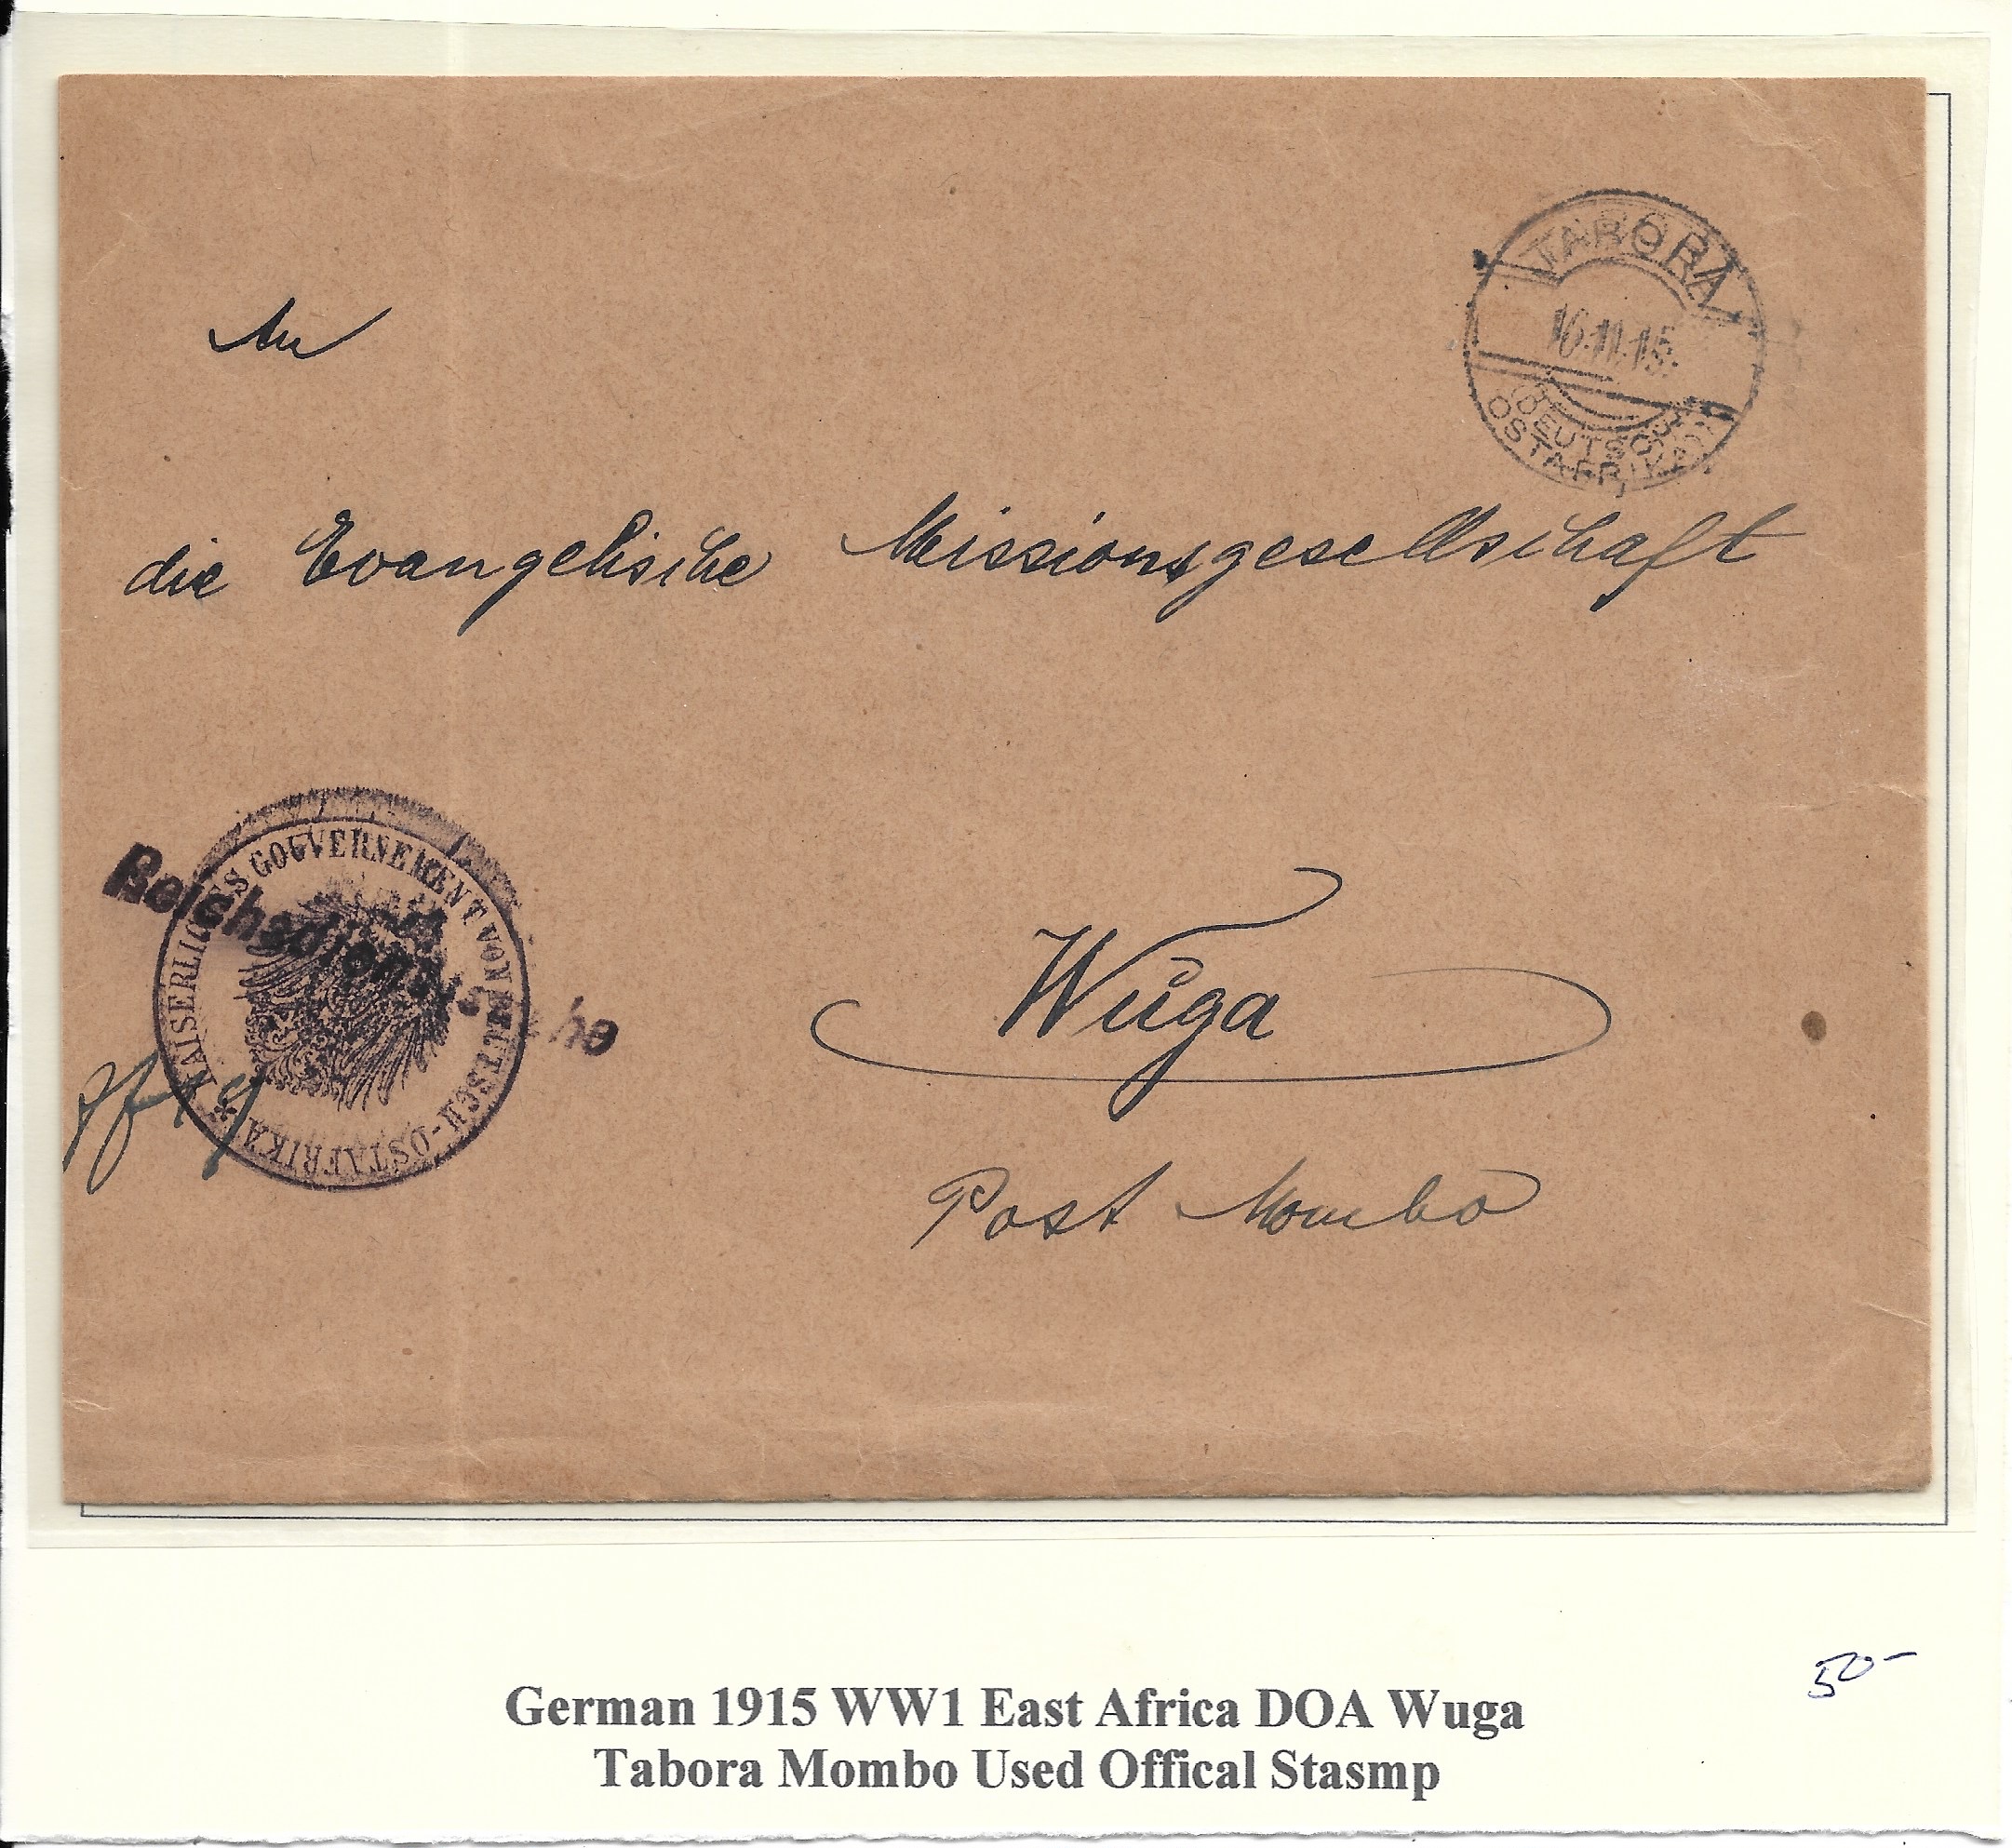 TABORA
16.11.15.
DEUTSCH
OSTAFRIKA
An
die Evangelische Missionsgesellschaft
Reichsdienstsache
KAISERLICHES GOUVERNEMENT VON DEUTSCH-OSTAFRIKA *
Wuga
Post Mombo
50-
German 1915 WW1 East Africa DOA Wuga
Tabora Mombo Used Offical Stasmp